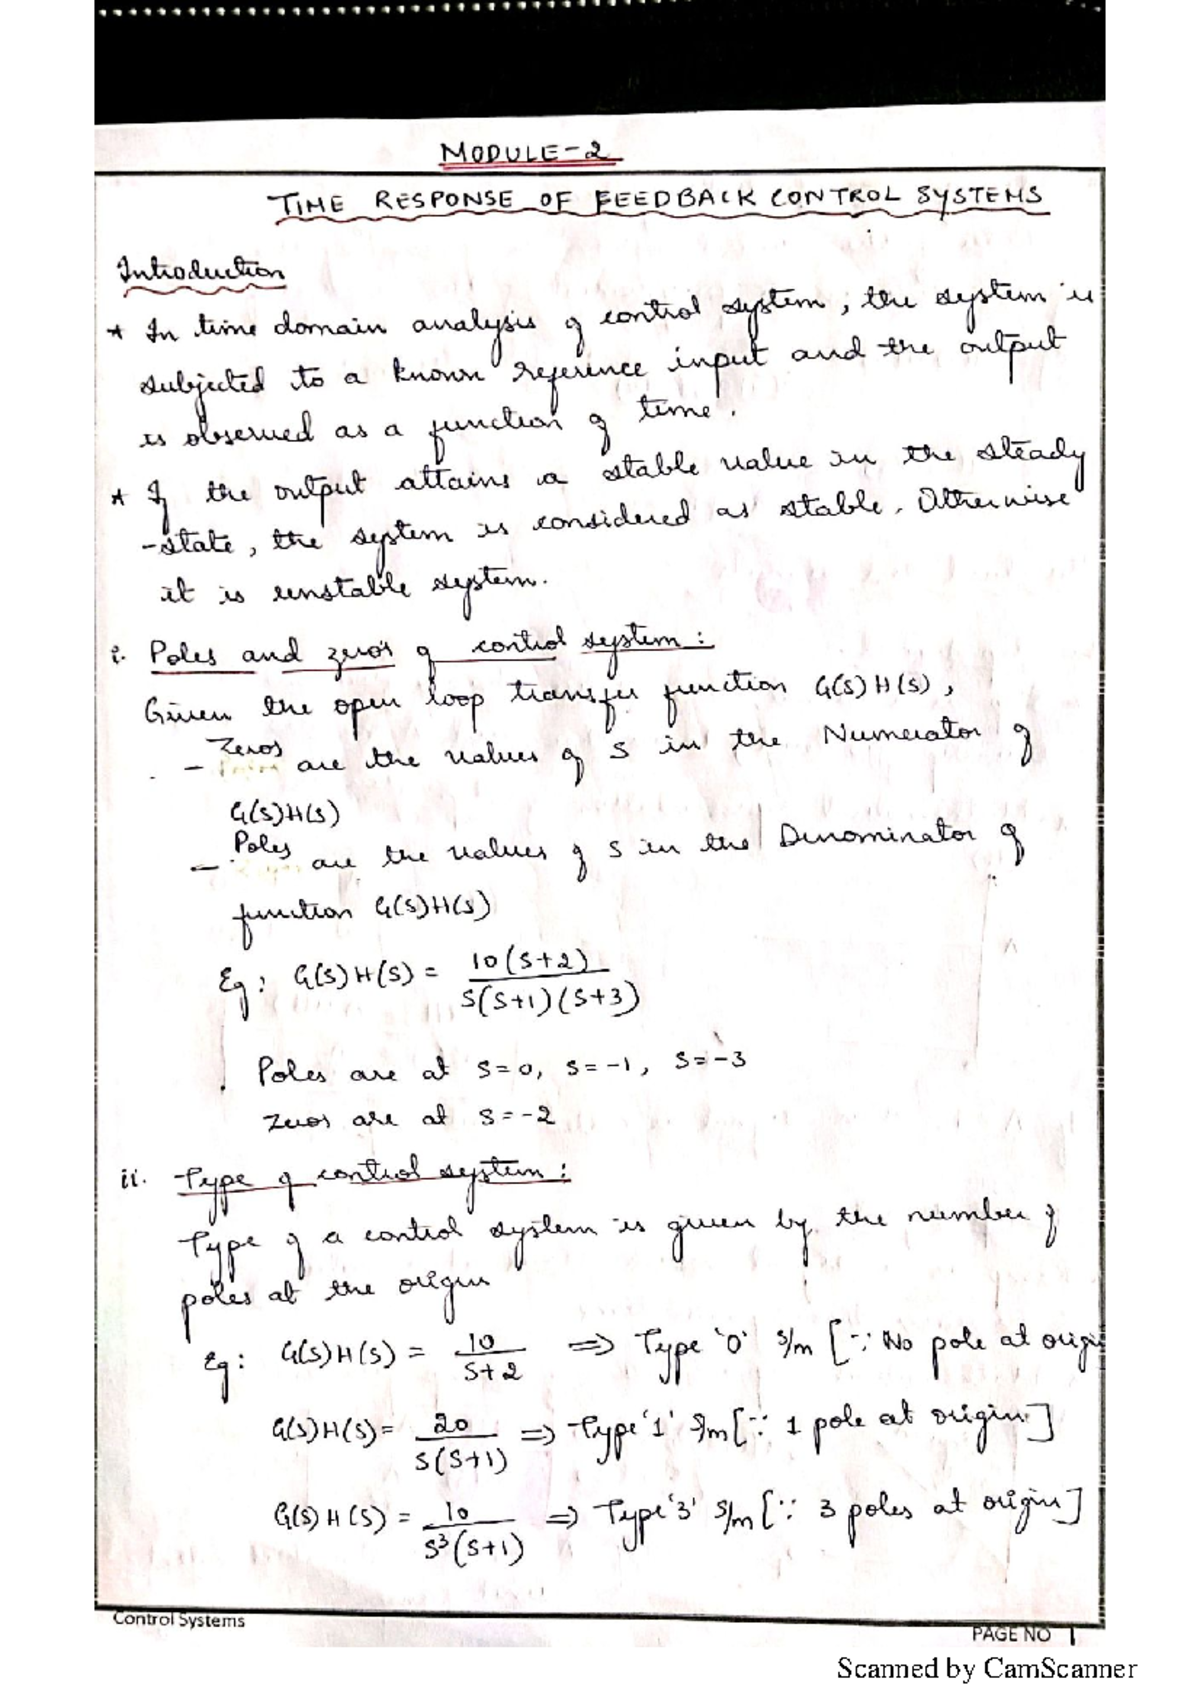 MODULE-2
TIME RESPONSE OF FEEDBACK CONTROL SYSTEMS
Introduction
* In time domain analysis of control system, the system is
subjected to a known reference input and the output
is observed as a function of time.
* If the output attains a stable value in the steady
-state, the system is considered as stable. Otherwise
it is unstable system.
i. Poles and zeros of control system:
Given the open loop transfer function G(s)H(s),
- Zeros are the values of s in the Numerator of
G(s)H(s)
- Poles are the values of s in the Denominator of
function G(s)H(s)
Eg: G(s)H(s) = 10(s+2) / s(s+1)(s+3)
Poles are at s=0, s=-1, s=-3
Zeros are at s=-2
ii. Type of control system:
Type of a control system is given by the number of
poles at the origin
Eg: G(s)H(s) = 10 / s+2 ⇒ Type '0' s/m [∵ No pole at origin
G(s)H(s) = 20 / s(s+1) ⇒ Type '1' s/m [∵ 1 pole at origin]
G(s)H(s) = 10 / s³(s+1) ⇒ Type '3' s/m [∵ 3 poles at origin]
Control Systems
PAGE NO 1
Scanned by CamScanner